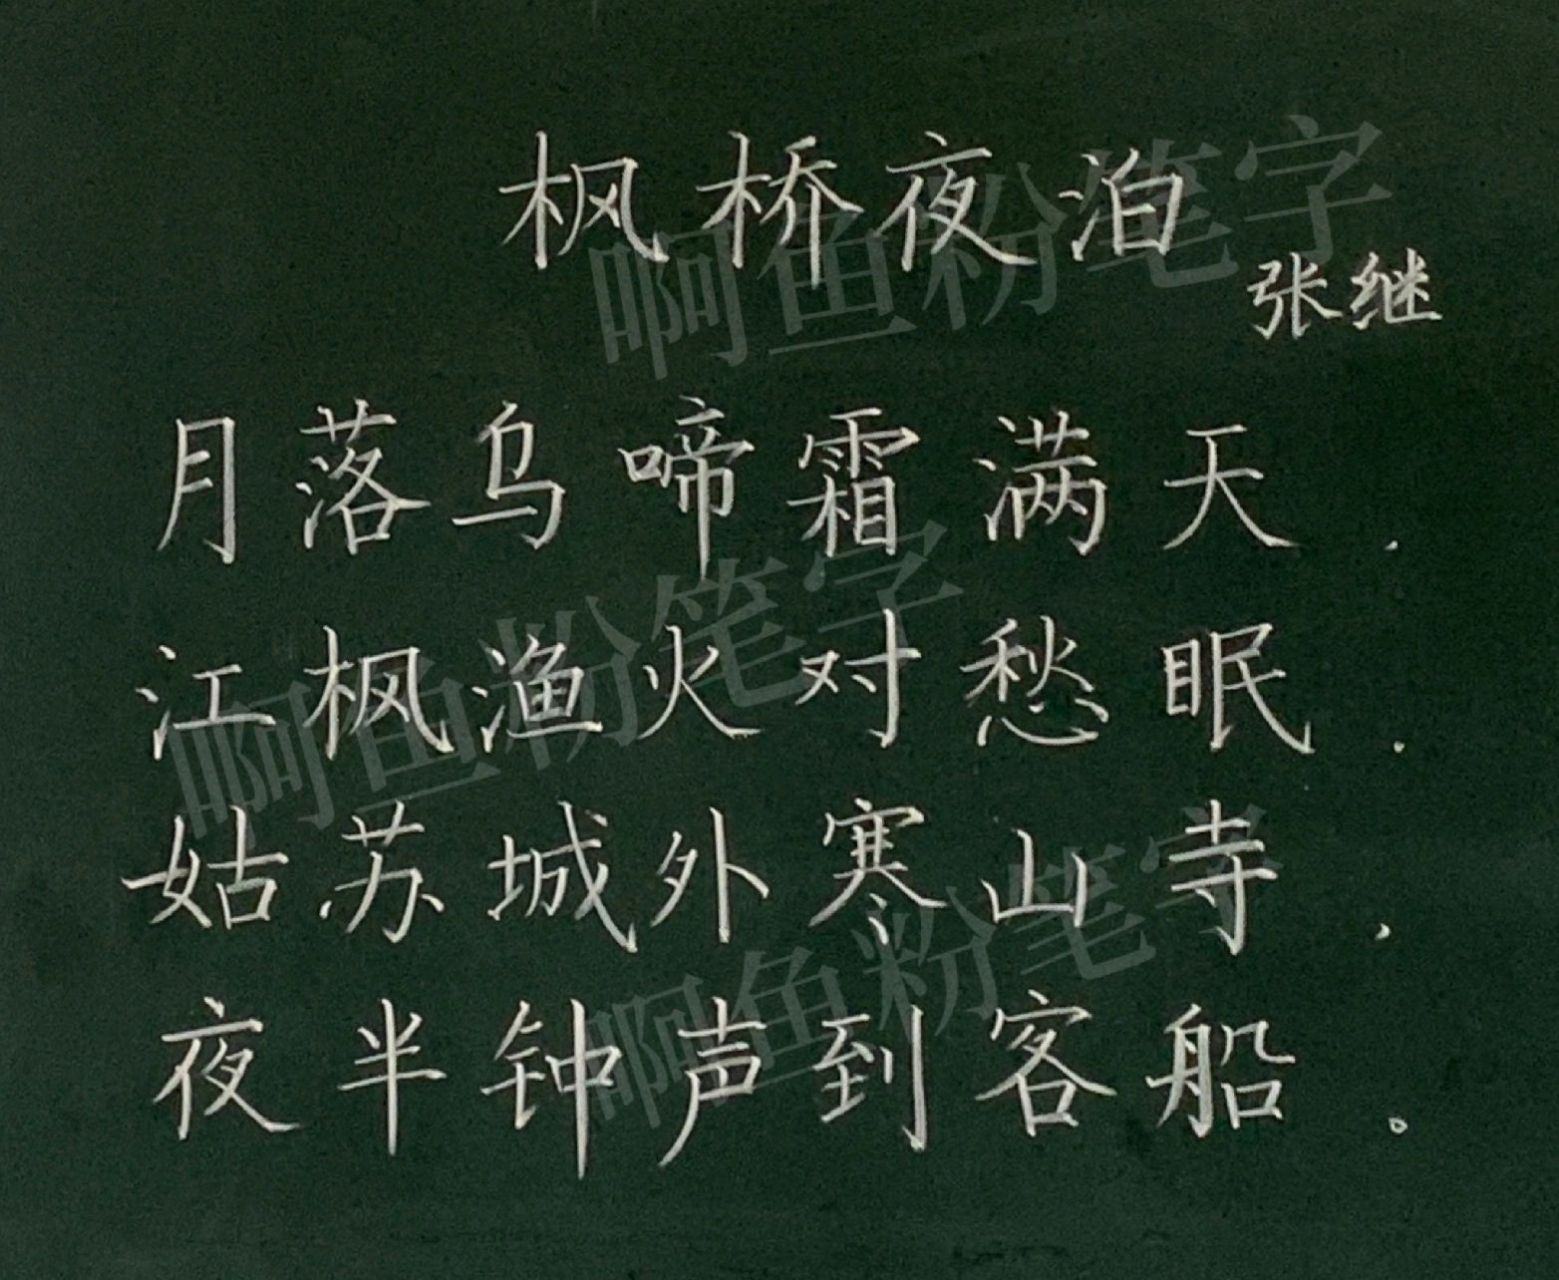 枫桥夜泊
张继
月落乌啼霜满天.
江枫渔火对愁眠.
姑苏城外寒山寺.
夜半钟声到客船。
啊鱼粉笔字
啊鱼粉笔字
啊鱼粉笔字